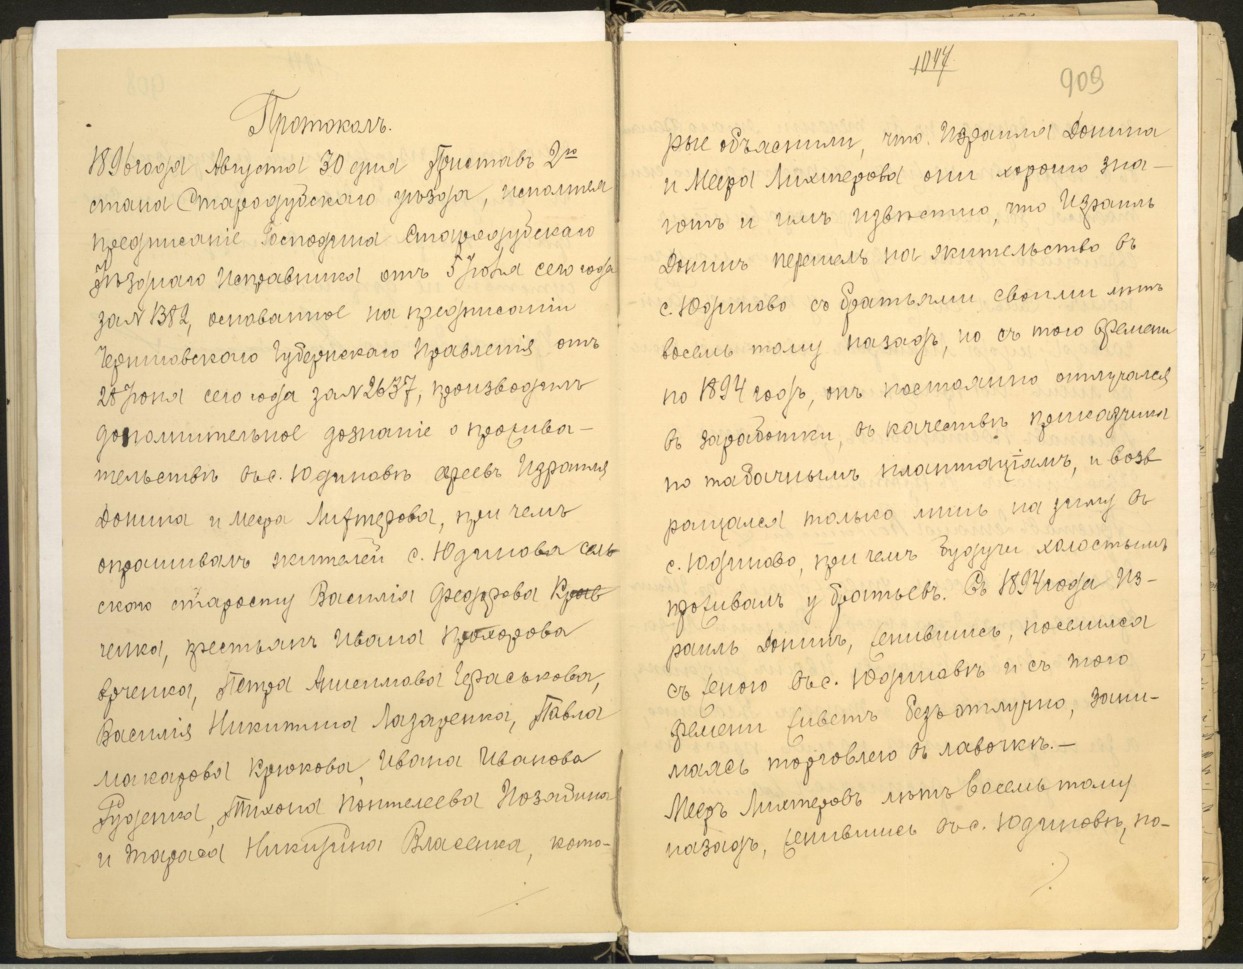 Протоколъ.
1896 года Августа 30 дня Приставъ 2го
стана Стародубскаго уѣзда, исполняя
предписаніе Господина Стародубскаго
Уѣзднаго Исправника отъ 5 Іюля сего года
за № 1382, основанное на предписаніи
Черниговскаго Губернскаго Правленія отъ
28 Іюня сего года за № 2637, производилъ
дополнительное дознаніе о прожива-
тельствѣ въ с. Юдиновѣ евреевъ Израиля
Донина и Меера Лихтерова, при чемъ
опрашивалъ жителей с. Юдинова сель
скаго старосту Василія Федорова Крав
ченка, крестьянъ Ивана Прохорова
Петра Анисимова Гераськова,
Василія Никитина Лазаренка, Павла
Макарова Крюкова, Ивана Иванова
Руденка, Тихона Пантелеева Позадина
и Тараса Никитина Власенка, кото-
1047
909
рые объяснили, что Израиля Донина
и Меера Лихтерова они хорошо зна-
ютъ и имъ извѣстно, что Израиль
Донинъ перешелъ на жительство въ
с. Юдиново съ братьями своими лѣтъ
восемь тому назадъ, но съ того времени
по 1894 годъ, онъ постоянно отлучался
въ заработки, въ качествѣ приказчика
по табачнымъ плантаціямъ, и возв
ращался только лишь на зиму въ
с. Юдиново, при чемъ будучи холостымъ
проживалъ у братьевъ. Съ 1894 года Из-
раиль Донинъ, женившись, поселился
съ женою въ с. Юдиновѣ и съ того
времени живетъ безъотлучно, зани-
маясь торговлею въ лавочкѣ.—
Мееръ Лихтеровъ лѣтъ восемь тому
назадъ, женившись въ с. Юдиновѣ, по-